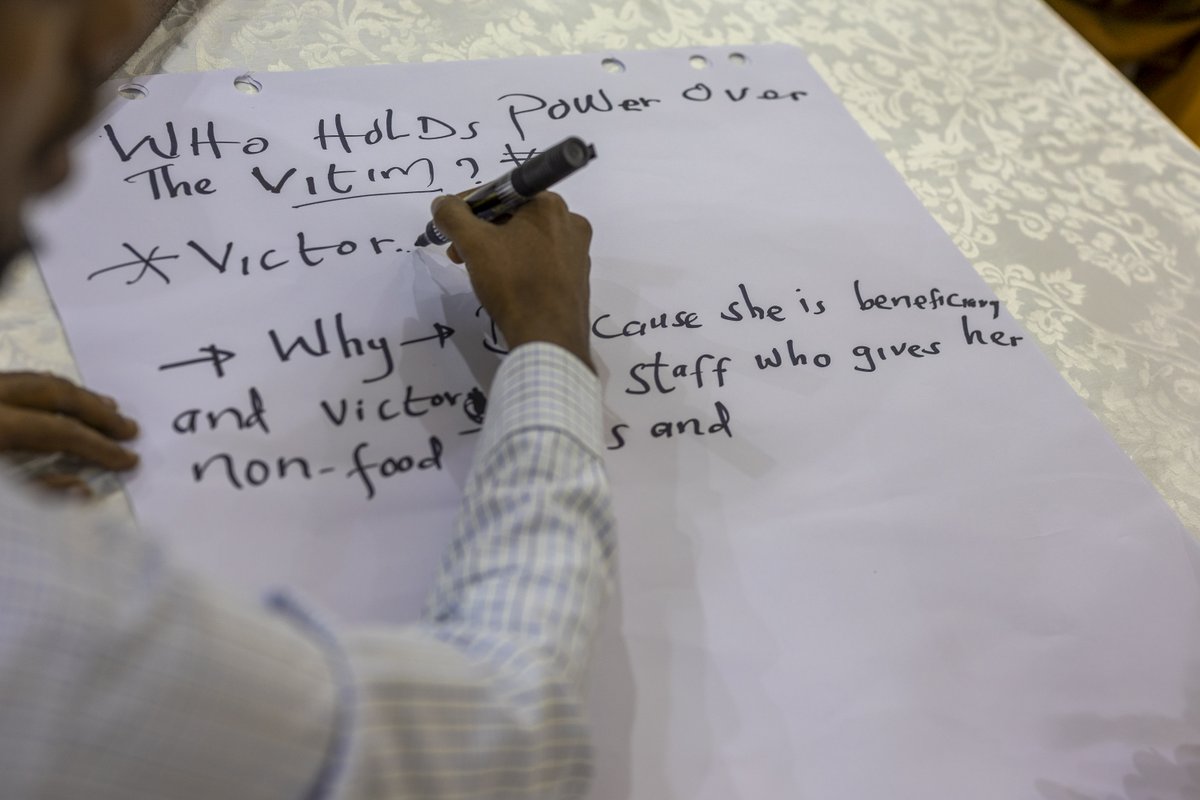 WHo HoLDs Power Over
The Vitim? #
* Victor..
→ Why → cause she is beneficiary
and victor staff who gives her
non-food s and